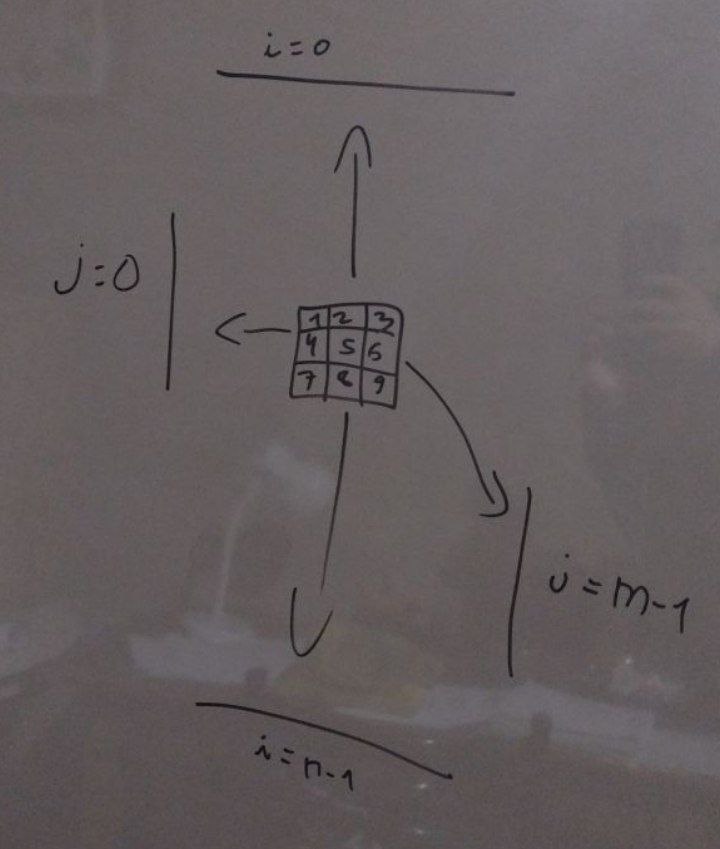 i=0
j=0
1 2 3
4 5 6
7 8 9
j=m-1
i=n-1